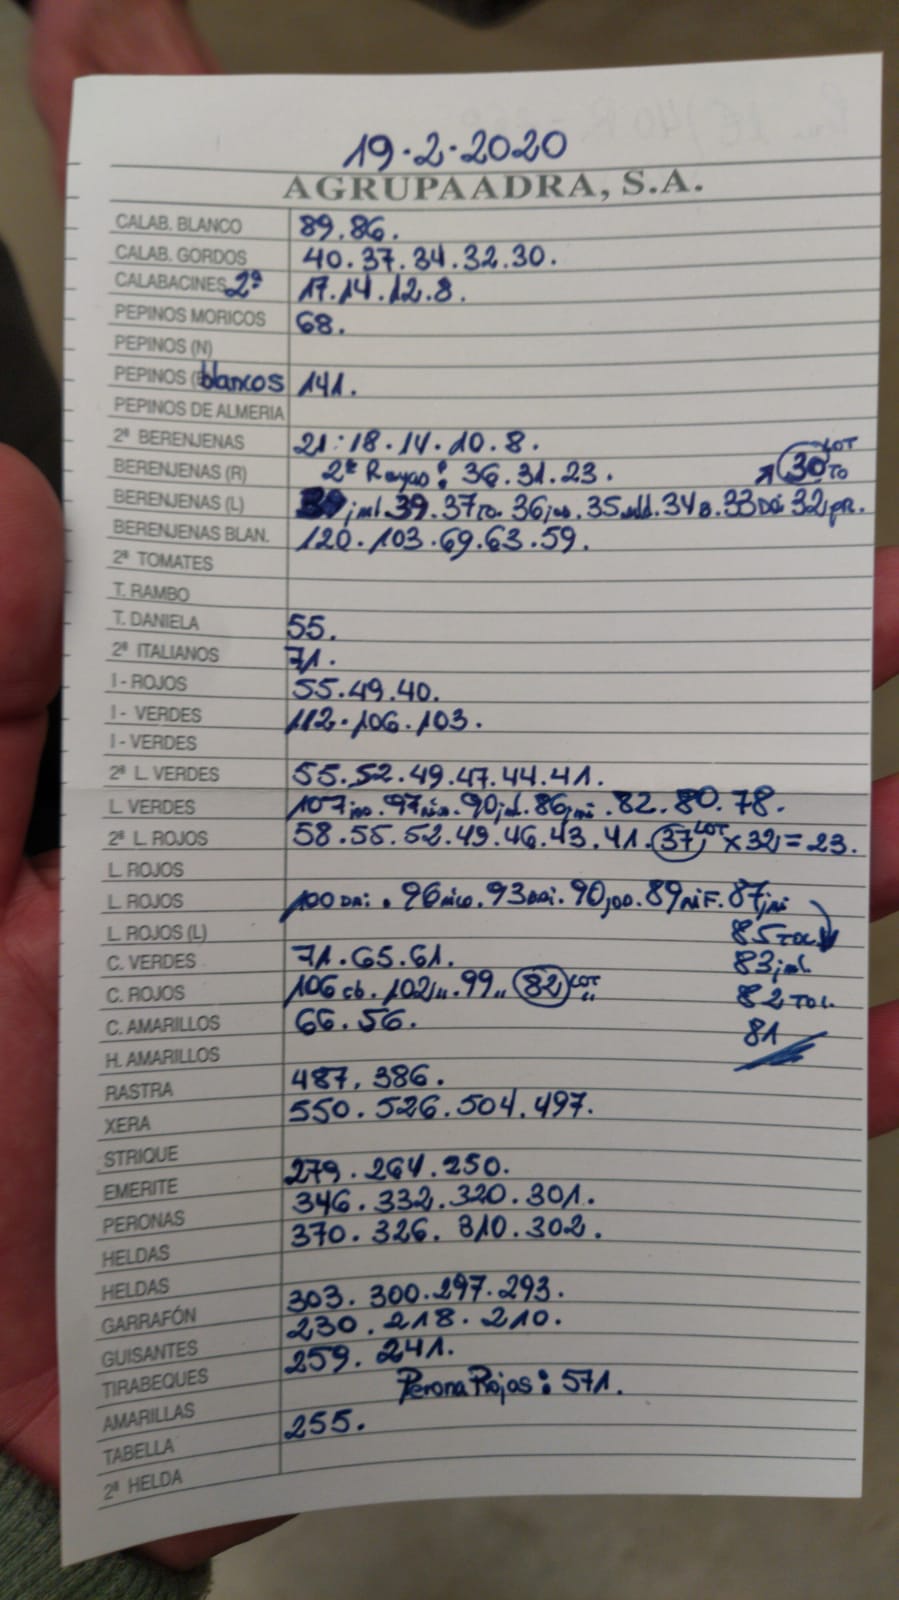 19.2.2020
AGRUPAADRA, S.A.
CALAB. BLANCO 89.86.
CALAB. GORDOS 40.37.34.32.30.
CALABACINES 2ª 17.14.12.8.
PEPINOS MORICOS 68.
PEPINOS (N)
PEPINOS ( blancos 141.
PEPINOS DE ALMERIA
2ª BERENJENAS 21.18.14.10.8.
BERENJENAS (R) 2ª Rayas: 36.31.23. 30 LOT TO
BERENJENAS (L) 39. 37 TO. 36 35 34 B. 33 DDi 32 PR.
BERENJENAS BLAN. 120.103.69.63.59.
2ª TOMATES
T. RAMBO
T. DANIELA 55.
2ª ITALIANOS 71.
I - ROJOS 55.49.40.
I - VERDES 112.106.103.
I - VERDES
2ª L. VERDES 55.52.49.47.44.41.
L. VERDES 107 97 90 86 82.80.78.
2ª L. ROJOS 58.55.52.49.46.43.41. 37 LOT x 32 = 23.
L. ROJOS
L. ROJOS 100 DDi. 96 nico. 93 DDi. 90 89 niF. 87
L. ROJOS (L) 85 TOL
C. VERDES 71.65.61. 83
C. ROJOS 106 cb. 102 „. 99 „ 82 LOT „ 82 TOL.
C. AMARILLOS 66.56. 81
H. AMARILLOS
RASTRA 487. 386.
XERA 550.526.504.497.
STRIQUE
EMERITE 279.264.250.
PERONAS 346.332.320.301.
HELDAS 370.326.310.302.
HELDAS
GARRAFÓN 303.300.297.293.
GUISANTES 230.218.210.
TIRABEQUES 259.241.
AMARILLAS Perona Rojas: 571.
TABELLA 255.
2ª HELDA